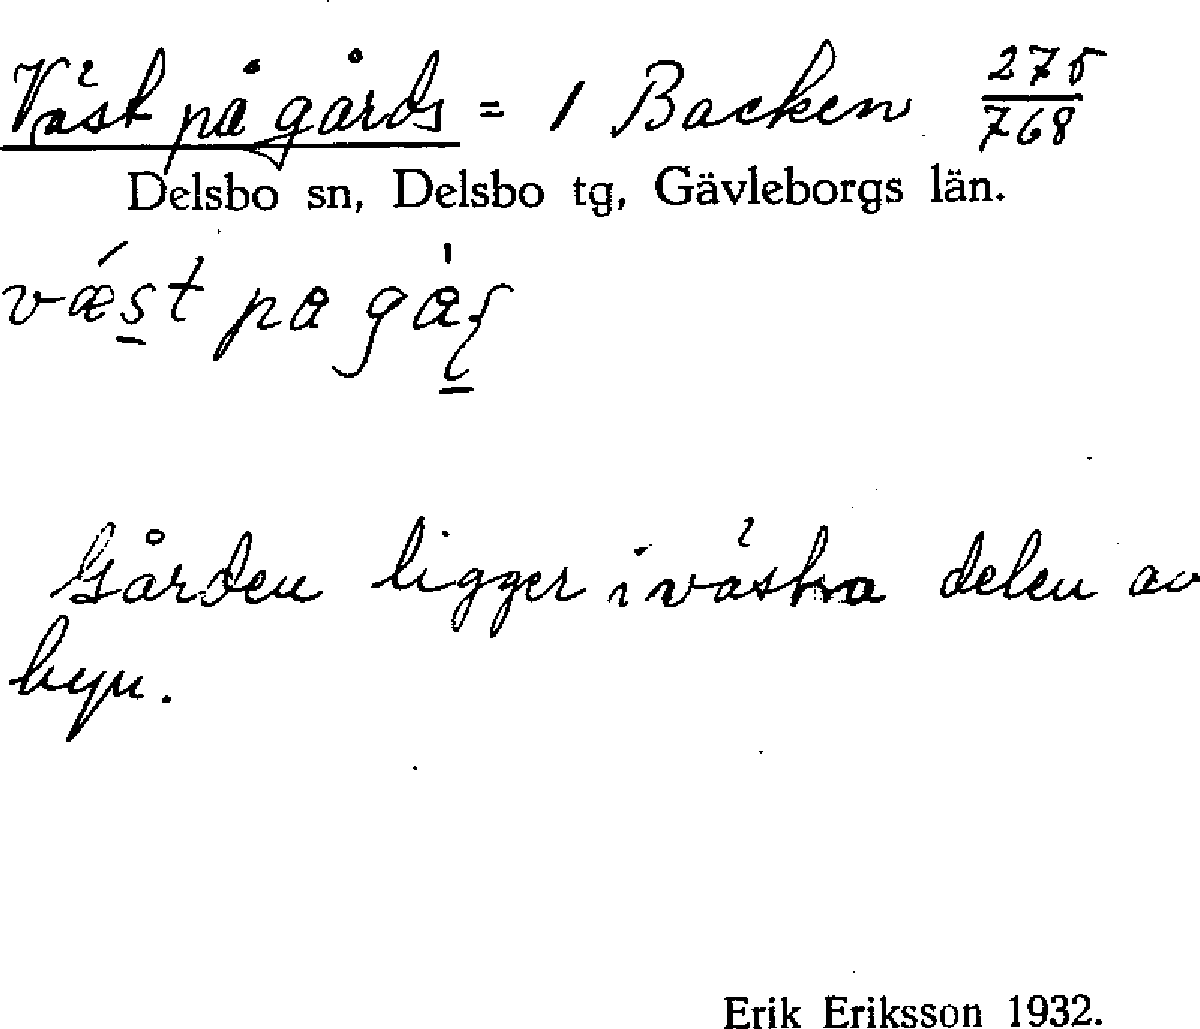 Väst på gårds = 1 Backen 275/768
Delsbo sn, Delsbo tg, Gävleborgs län.
vǽst pa
Gården ligger i västra delen av
byn.
Erik Eriksson 1932.